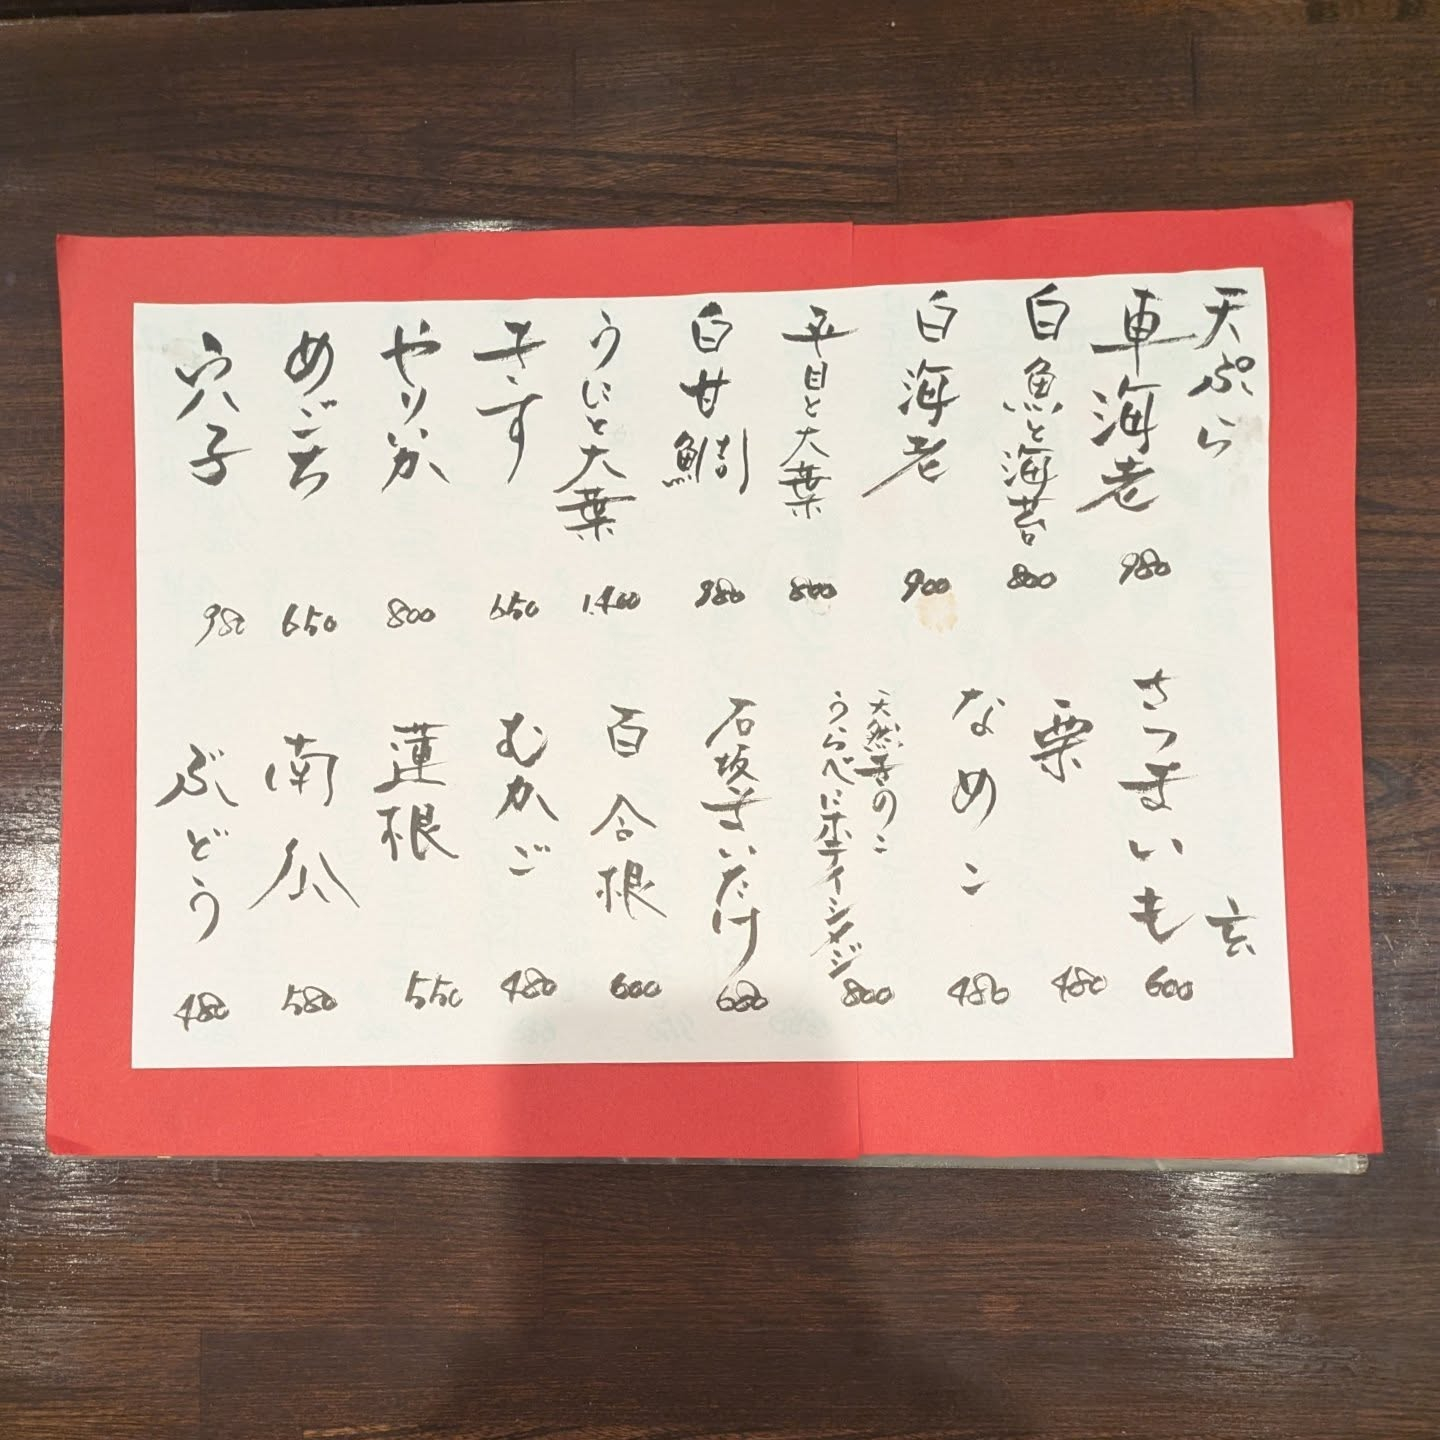 天ぷら
車海老 980
白魚と海苔 800
白海老 900
平目と大葉 800
白甘鯛 980
うにと大葉 1.400
きす 650
やりか 800
めごち 650
穴子 980
玄
さつまいも 600
栗 480
なめこ 480
天然きのこ
うらべにホテイシメジ 800
石坂まいたけ 680
百合根 600
むかご 480
蓮根 550
南瓜 580
ぶどう 480